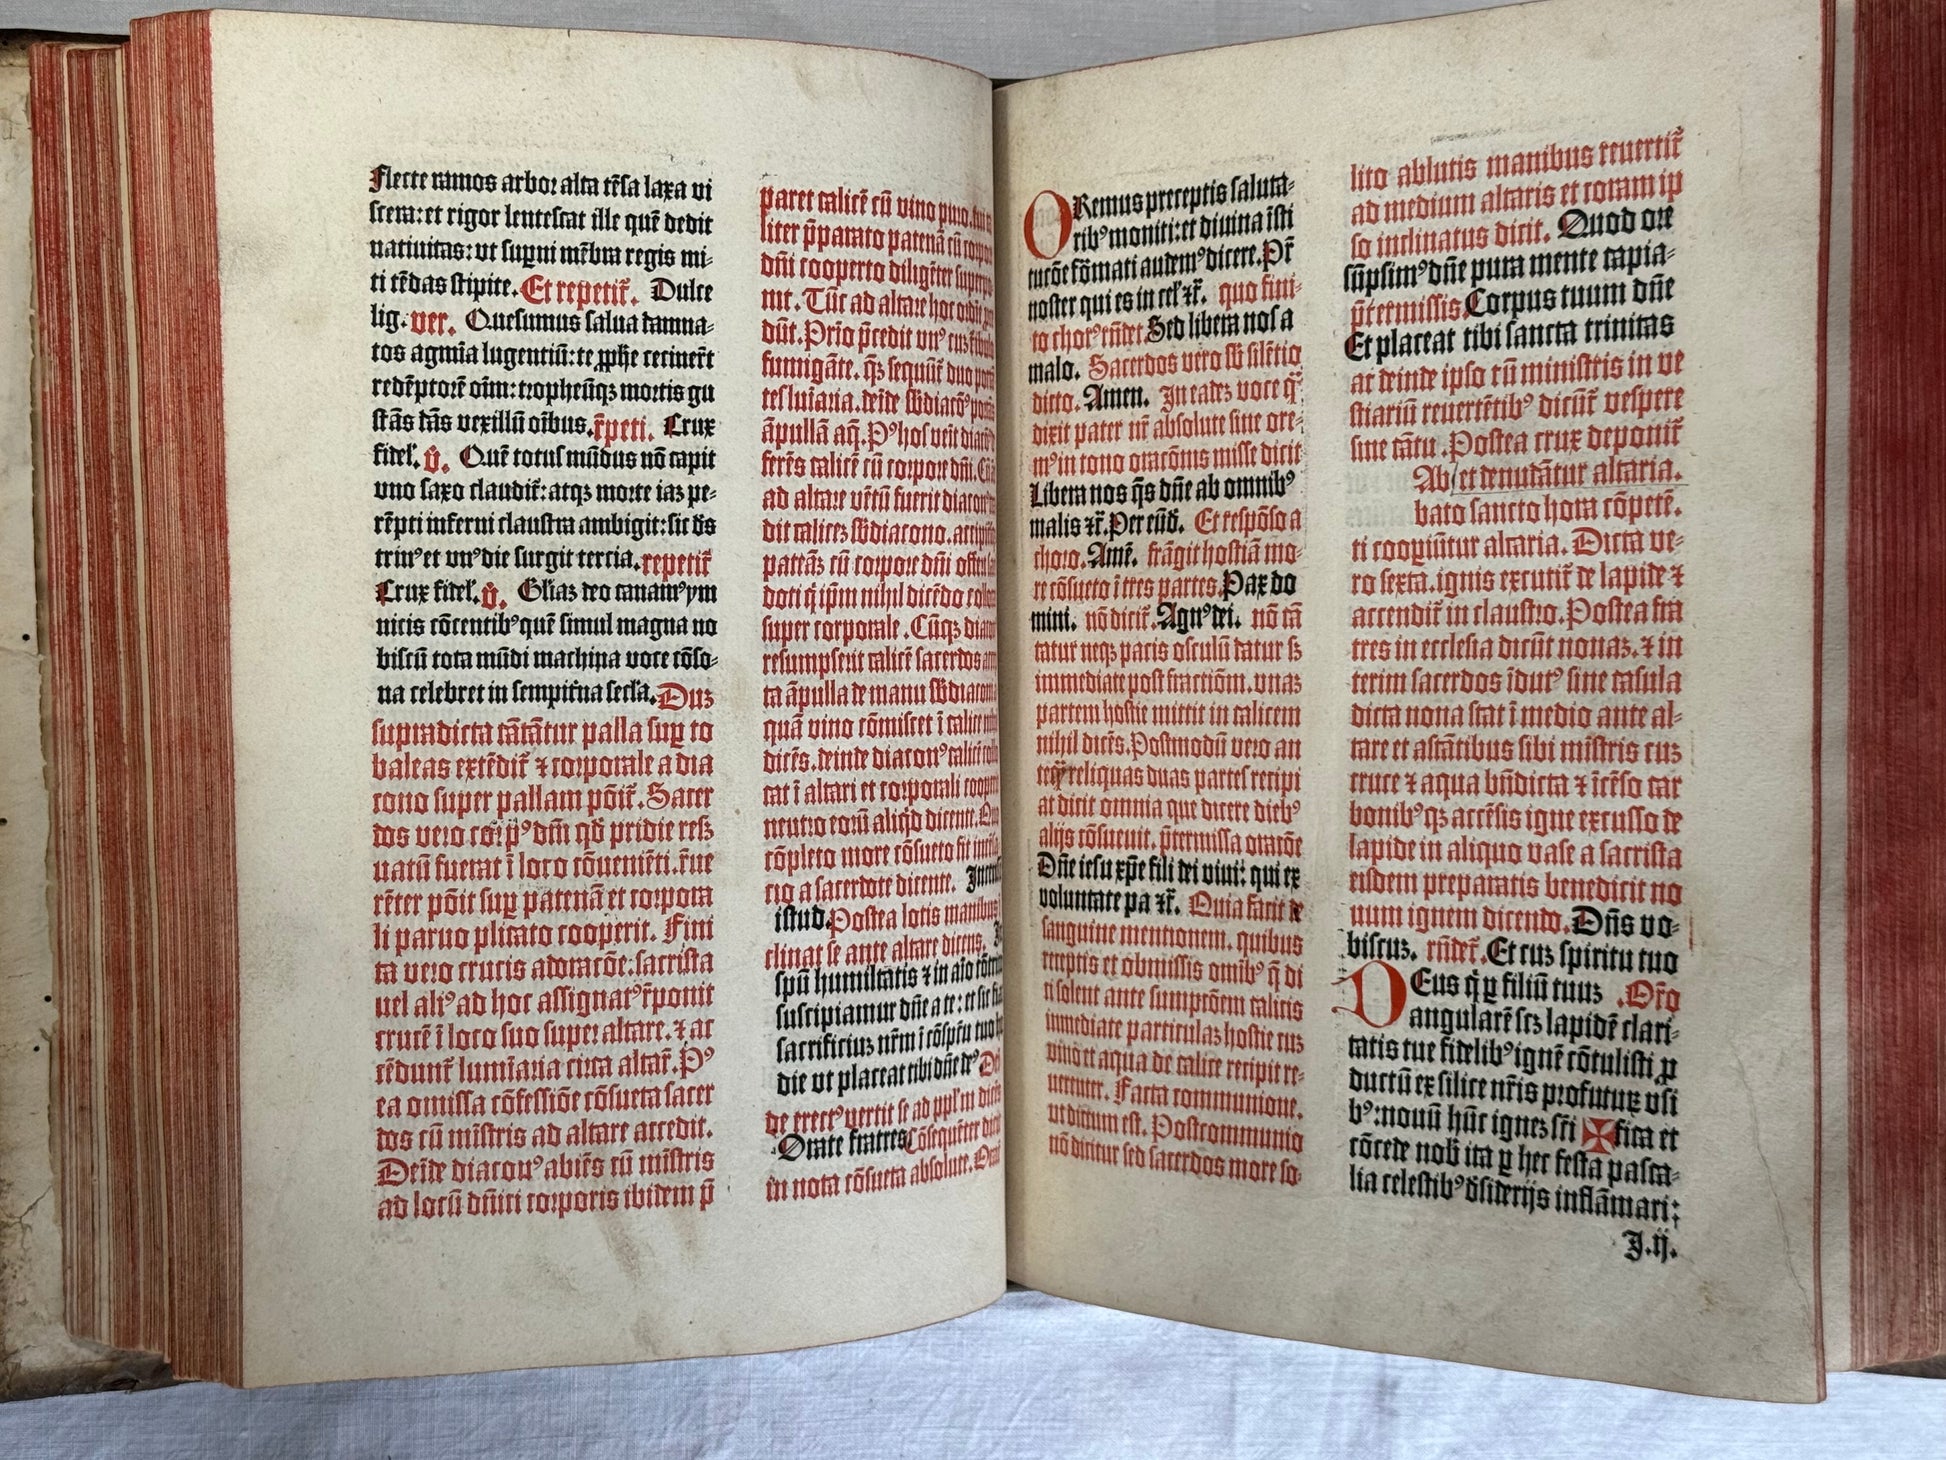 Flecte ramos arbor alta tēsa laxa vi
scera: et rigor lentescat ille quē dedit
natiuitas: vt sup̱ni mēbra regis mi-
ti tēdas stipite. Et repetit̄. Dulce
lig. ver. Quesumus salua damna-
tos agmīa lugentiū: te ꝓphe reciner̄t
redēptorē oīm: tropheūqꝫ mortis gu
stās dās vexillū oībus. r̄peti. Crux
fidel̓. v̄. Quē totus mūdus nō capit
vno saxo claudit̄: atqꝫ morte iaꝫ pe-
rēpti inferni claustra ambigit: sic ds̄
trinꝰ et vnꝰ die surgit tercia. repetit̄
Crux fidel̓. v̄. Glīaꝫ deo canamꝰ ym
nicis cōcentibꝰ quē simul magna no
biscū tota mūdi machina voce cōso-
na celebret in sempit̄na secl̄a. Duꝫ
supradicta cātātur palla suꝑ to
baleas extēdit̄ ⁊ corporale a dia
cono super pallam pōit̄. Sacer
dos vero corpꝰ dn̄i qd̓ pridie reß
uatū fuerat ī loco cōueniēti. r̄ue
rēter pōit suꝑ patenā et corpora
li paruo plicato cooperit. Fini
ta vero crucis adoracōe: sacrista
uel aliꝰ ad hoc assignatꝰ r̄ponit
crucē ī loco suo super altare. ⁊ ac
cēdunt̄ lumīaria circa altar̄. Pꝰ
ea omissa cōfessiōe cōsueta sacer
dos cū mīstris ad altare accedit.
Deīde diaconꝰ abiēs cū mīstris
ad locū dn̄ici corporis ibidem p̄
paret calicē cū vino puro.
liter p̄parato patenā cū
dn̄i cooperto diligēter
nit. Tūc ad altare hoc ordīe
dūt. Prīo p̄cedit vnꝰ cuꝫ
fumigāte. qꝫ sequūt̄ duo
tes luīaria. deīde sb̄diaconꝰ
āpullā aq̄. Pꝰ hos veit
ferēs calicē cū corpore dn̄i.
ad altare vētū fuerit
dit caliceꝫ sb̄diacono.
patēaꝫ cū corpore dn̄i
doti q̓ ip̄m nihil dicēdo
super corporale. Cūqꝫ
resumpserit calicē sacerdos
ta āpulla de manu
quā vino cōmiscet ī calice
dicēs. deinde diaconꝰ calicē
cat ī altari et corporali
neutro eorū aliq̓d dicente.
cōpleto more cōsueto fit
cio a sacerdote dicente.
istud. Postea lotis manibus
clinat se ante altare dicens.
spū humilitatis ⁊ in aīo
suscipiamur dn̄e a te: et sic
sacrificiuꝫ nr̄m ī cōspectu tuo
die vt placeat tibi dn̄e deꝰ
de erectꝰ vertit se ad ppl̄m dicēs
Orate fratres Cōsequēter
in nota cōsueta absolute.
ORemus preceptis saluta-
ribꝰ moniti: et diuina īsti
tucōe fōmati audemꝰ dicere. Pr̄
noster qui es in cel̓ ⁊c̄. quo fini-
to chorꝰ rn̄det Sed libera nos a
malo. Sacerdos vero sb̄ silētio
dicto. Amen. In eadeꝫ voce q̓
dixit pater nr̄ absolute sine ore-
mꝰ in tono oracōnis misse dicit
Libera nos q̄s dn̄e ab omnibꝰ
malis ⁊c̄. Per eūd̓. Et respōso a
choro. Amē. frāgit hostiā mo-
re cōsueto ī tres partes. Pax do
mini. nō dicit̄. Agnꝰ dei. nō cā
tatur neqꝫ pacis osculū datur sꝫ
immediate post fractiōm. vnaꝫ
partem hostie mittit in calicem
nihil dicēs. Postmodū vero an
teq̄ꝫ reliquas duas partes recipi
at dicit omnia que dicere diebꝰ
alijs cōsueuit. p̄termissa oracōe
Dn̄e iesu xp̄e fili dei viui: qui ex
voluntate pa ⁊c̄. Quia facit de
sanguine mentionem. quibus
receptis et obmissis omībꝰ q̄ di
ci solent ante sumptōem calicis
immediate particulaꝫ hostie cuꝫ
vino et aqua de calice recipit re-
uerenter. Facta communione.
vt dictum est. Postcommunio
nō dicitur sed sacerdos more so-
lito ablutis manibus reuertit̄
ad medium altaris et coram ip
so inclinatus dicit. Quod ore
sūpsimꝰ dn̄e pura mente capia-
p̄termissis Corpus tuum dn̄e
Et placeat tibi sancta trinitas
ac deinde ipso cū ministris in ve
stiariū reuertētibꝰ dicūt̄ vespere
sine cātu. Postea crux deponit̄
Ab et denudātur altaria.
bato sancto hora cōpetē.
ti cooꝑiūtur altaria. Dicta ve-
ro sexta. ignis excutit̄ de lapide ⁊
accendit̄ in claustro. Postea fra
tres in ecclesia dicūt nonaꝫ. ⁊ in
terim sacerdos īdutꝰ sine casula
dicta nona stat ī medio ante al-
tare et astātibus sibi mīstris cuꝫ
cruce ⁊ aqua bn̄dicta ⁊ īcēso car
bonibꝰqꝫ accēsis igne excusso de
lapide in aliquo vase a sacrista
eisdem preparatis benedicit no
uum ignem dicendo. Dn̄s vo-
biscuꝫ. rn̄det̄. Et cuꝫ spiritu tuo
DEus q̓ ꝑ filiū tuuꝫ . Or̄o
angularē scꝫ lapidē clari-
tatis tue fidelibꝰ ignē cōtulisti ꝓ
ductū ex silice nr̄is profuturꝫ vsi
bꝰ: nouū hūc igneꝫ sc̄i ✠ fica et
cōcede nob̓ ita ꝑ hec festa pasca-
lia celestibꝰ d̓siderijs inflāmari:
J.ij.